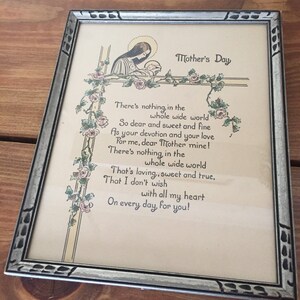 Mother's Day
There's nothing in the
whole wide world
So dear and sweet and fine
As your devotion and your love
For me, dear Mother mine!
There's nothing in the
whole wide world
That's loving, sweet and true,
That I don't wish
with all my heart
On every day, for you!